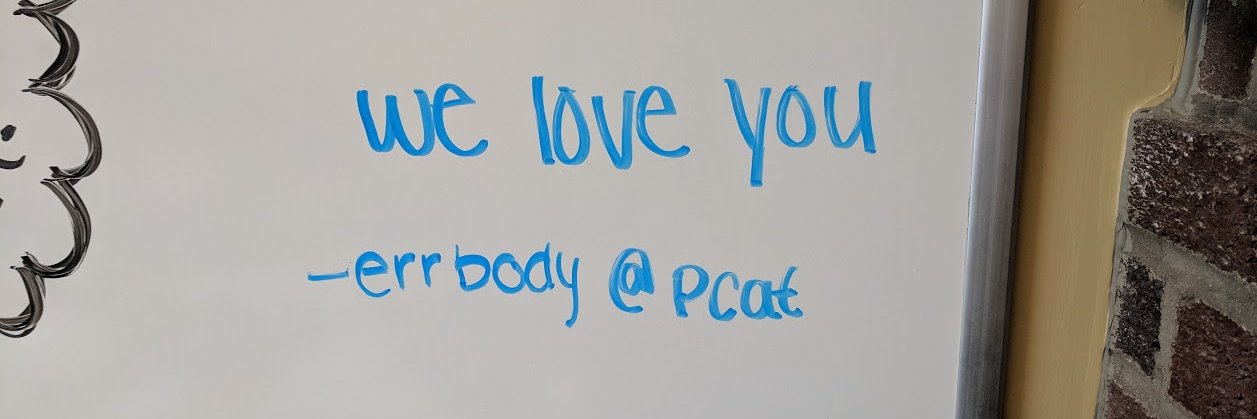 we love you
-errbody @ pcat